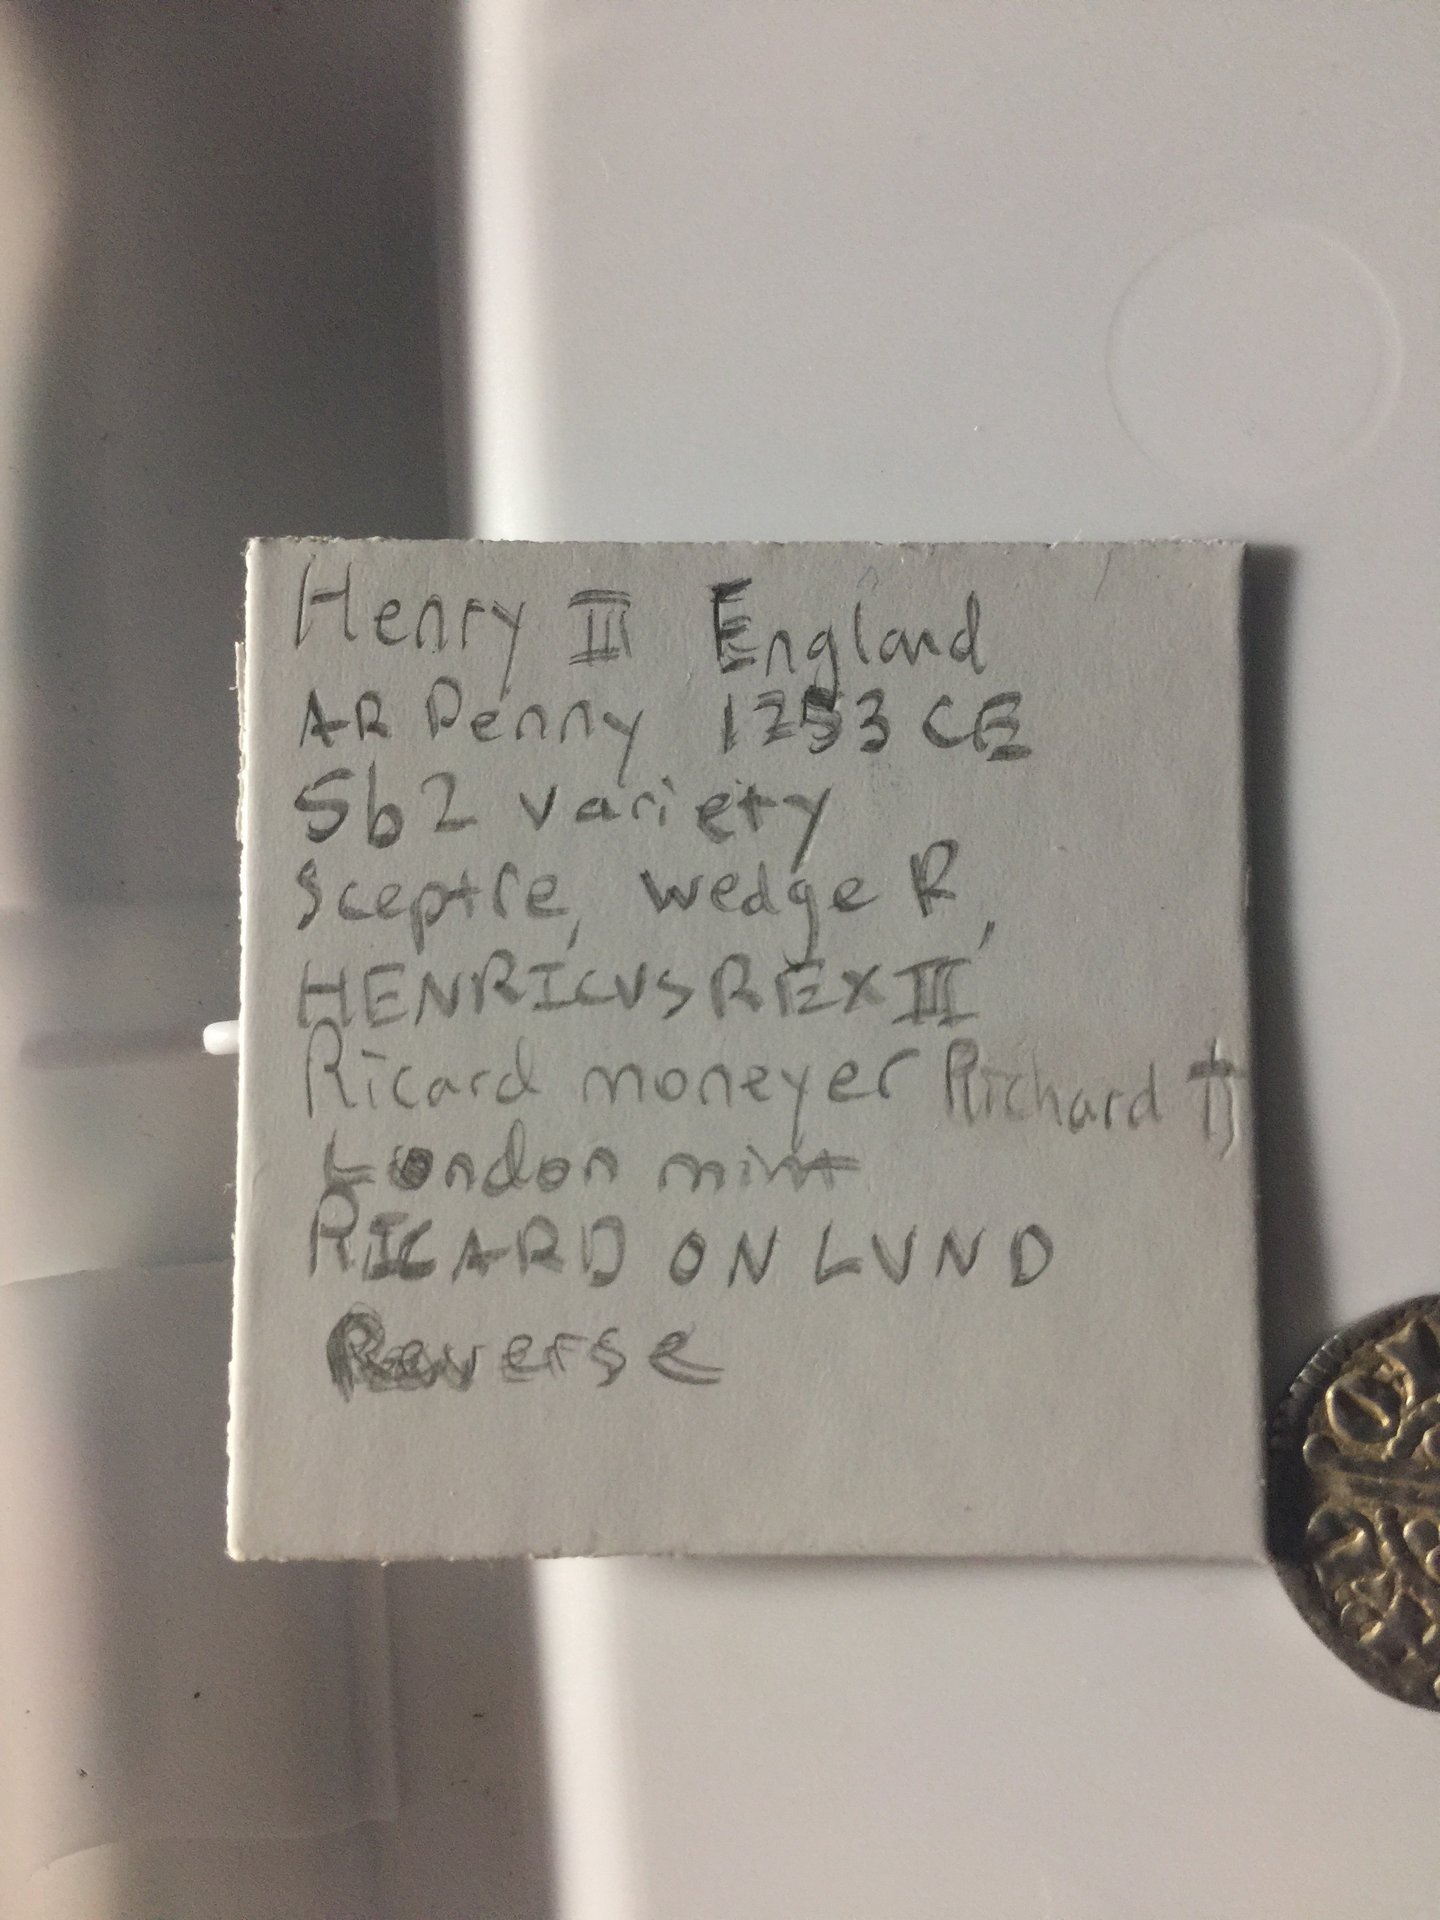 Henry III England
AR Penny 1253 CE
5b2 variety
Sceptre, wedge R,
HENRICVS REX III
Ricard moneyer Richard
London mint
RICARD ON LVND
Reverse